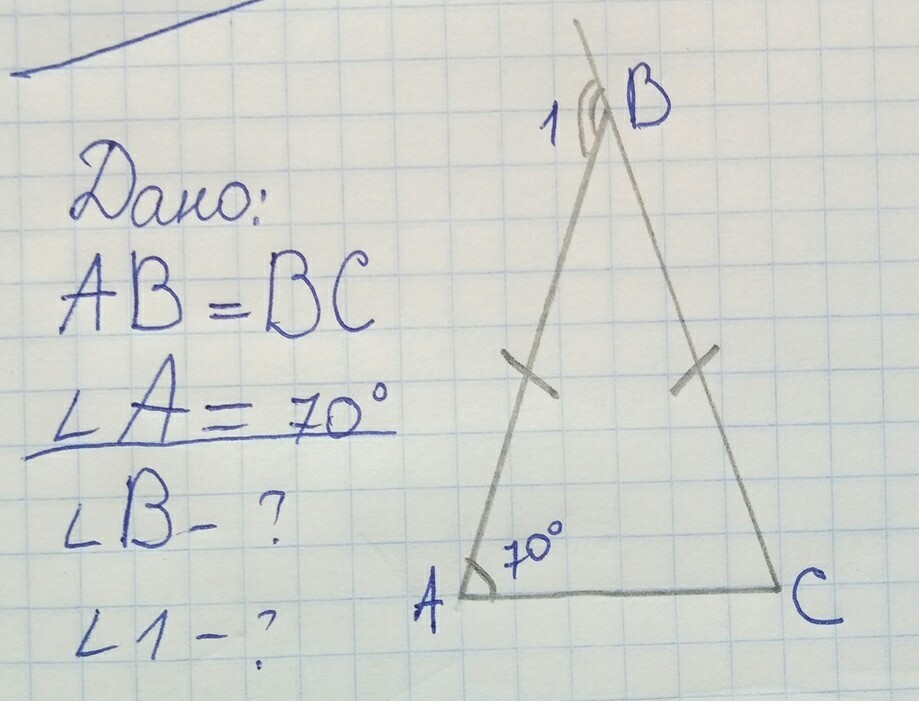 Дано:
AB = BC
∠A = 70°
∠B - ?
∠1 - ?
1
B
70°
A
C